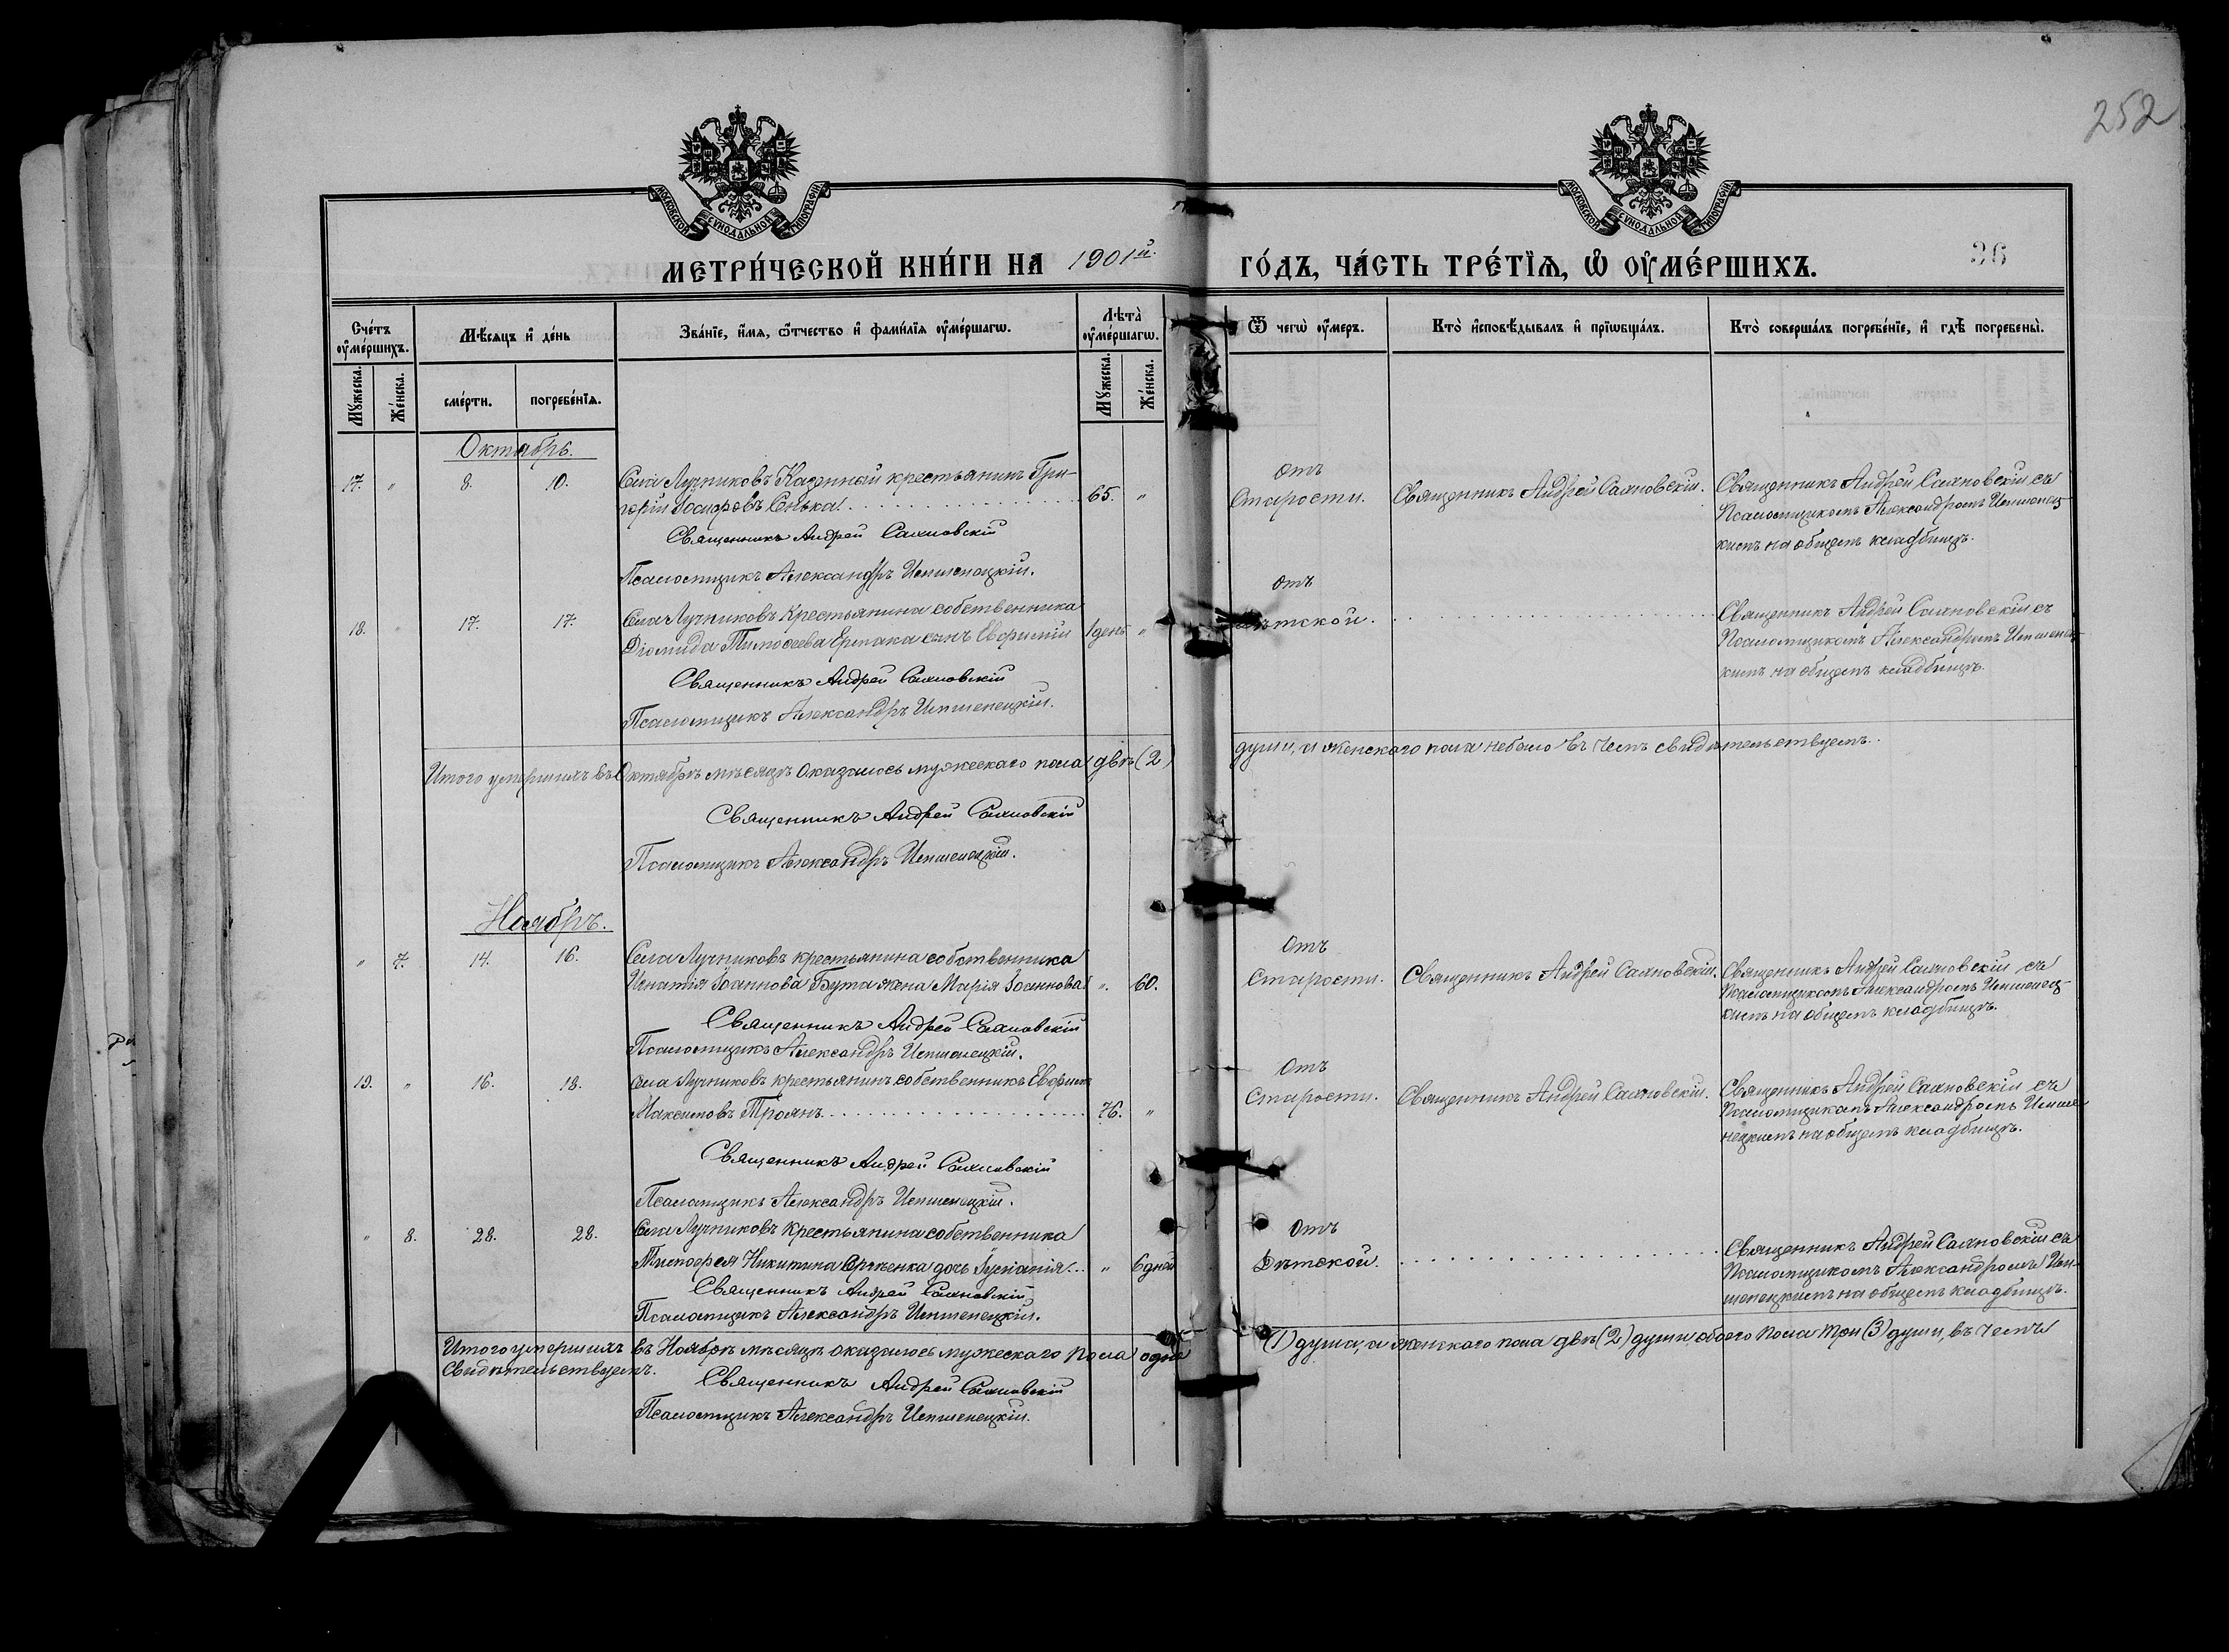 252
МОСКОВСКОЙ СѴНОДАЛЬНОЙ ТИПОГРАФІИ
МОСКОВСКОЙ СѴНОДАЛЬНОЙ ТИПОГРАФІИ
МЕТРИ́ЧЕСКОЙ КНИ́ГИ НА 1901й.
ГО́ДЪ, ЧА́СТЬ ТРЕ́ТЇѦ, Ѡ ОУ҆МЕ́РШИХЪ.
36
Сче́тъ оу҆ме́ршихъ.
Мѣ́сѧцъ и҆ де́нь
Зва́нїе, и҆́мѧ, ѻ҆́тчество и҆ фами́лїѧ оу҆ме́ршагѡ.
Лѣта̀ оу҆ме́ршагѡ.
Ѿ чегѡ̀ оу҆́меръ.
Кто̀ и҆сповѣ́дывалъ и҆ прїѡбща́лъ.
Кто̀ соверша́лъ погребе́нїе, и҆ гдѣ̀ погребены̀.
Мꙋ́жеска.
Же́нска.
сме́рти.
погребе́нїѧ.
Мꙋ́жеска.
Же́нска.
Октябрь.
17. " 8. 10. Села Лучниковъ Казенный крестьянинъ Гри-
горій Іосифовъ Сенька. 65. "
Священникъ Андрей Саяновскій
Псаломщикъ Александръ
отъ
Старости. Священникъ Андрей Саяновскій. Священникъ Андрей Саяновскій съ
Псаломщикомъ Александромъ
кимъ на общемъ кладбищѣ.
18. " 17. 17. Села Лучниковъ Крестьянина собственника
Діомида Тимофеева Ермака сынъ Евфимій 1 день "
Священникъ Андрей Саяновскій
Псаломщикъ Александръ
отъ
Дѣтской. Священникъ Андрей Саяновскій съ
Псаломщикомъ Александромъ
кимъ на общемъ кладбищѣ.
Итого умершихъ въ Октябрѣ мѣсяцѣ оказалось мужескаго пола двѣ (2)
души, а женскаго пола небыло въ чемъ свидѣтельствуемъ.
Священникъ Андрей Саяновскій
Псаломщикъ Александръ
Ноябрь.
" 7. 14. 16. Села Лучниковъ крестьянина собственника
Игнатія Іоаннова Бута жена Марія Іоаннова ". 60.
Священникъ Андрей Саяновскій
Псаломщикъ Александръ
Отъ
Старости. Священникъ Андрей Саяновскій. Священникъ Андрей Саяновскій съ
Псаломщикомъ Александромъ
кимъ на общемъ кладбищѣ.
19. " 16. 18. Села Лучниковъ крестьянинъ собственникъ Евфимій
Максимовъ Троянъ. 76. "
Священникъ Андрей Саяновскій
Псаломщикъ Александръ
Отъ
Старости. Священникъ Андрей Саяновскій. Священникъ Андрей Саяновскій съ
Псаломщикомъ Александромъ
на общемъ кладбищѣ.
" 8. 28. 28. Села Лучниковъ Крестьянина собственника
Никитина дочь " 6 дней
Священникъ Андрей Саяновскій
Псаломщикъ Александръ
Отъ
Дѣтской. Священникъ Андрей Саяновскій съ
Псаломщикомъ Александромъ
на общемъ кладбищѣ.
Итого умершихъ въ Ноябрѣ мѣсяцѣ оказалось мужескаго пола одна
(1) душа, а женскаго пола двѣ (2) души, обоего пола три (3) души, въ чемъ
свидѣтельствуемъ.
Священникъ Андрей Саяновскій
Псаломщикъ Александръ